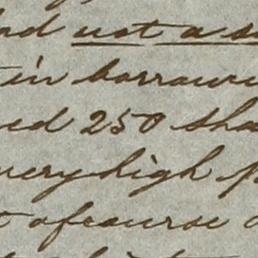 not a
in borrowe
ed 250 sha
very high
ofcourse